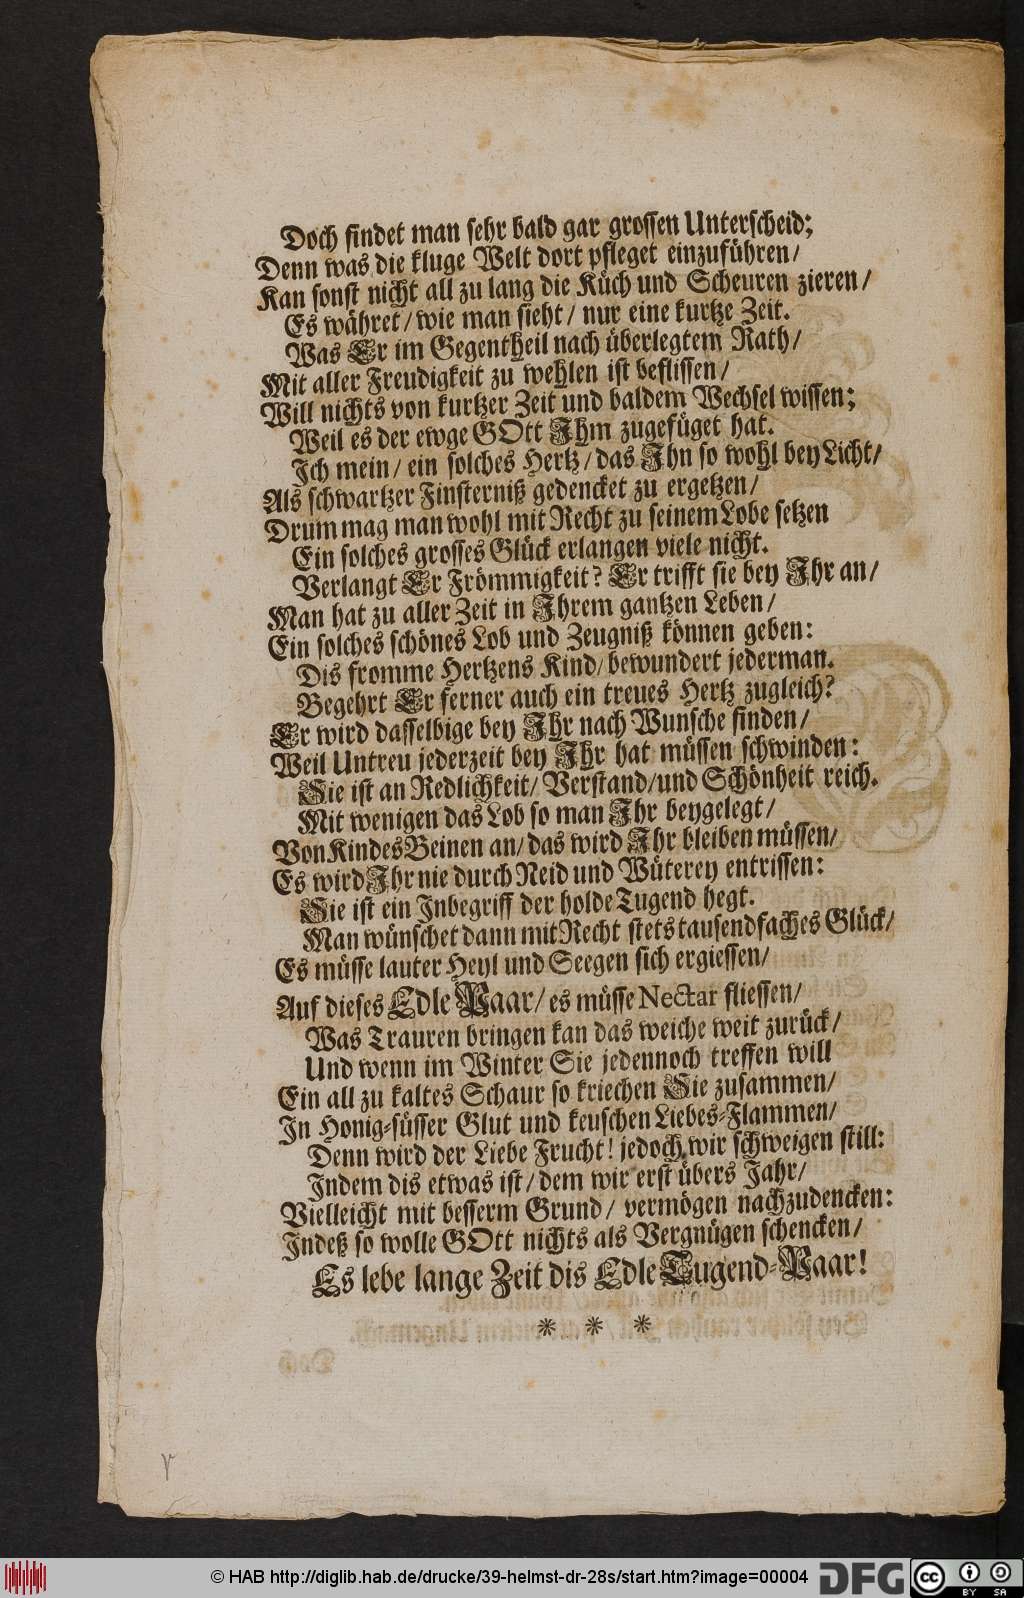 Doch findet man sehr bald gar grossen Unterscheid;
Denn was die kluge Welt dort pfleget einzuführen/
Kan sonst nicht all zu lang die Küch und Scheuren zieren/
Es währet/ wie man sieht/ nur eine kurtze Zeit.
Was Er im Gegentheil nach überlegtem Rath/
Mit aller Freudigkeit zu wehlen ist beflissen/
Will nichts von kurtzer Zeit und baldem Wechsel wissen;
Weil es der ewge GOtt Ihm zugefüget hat.
Ich mein/ ein solches Hertz/ das Ihn so wohl bey Licht/
Als schwartzer Finsterniß gedencket zu ergetzen/
Drum mag man wohl mit Recht zu seinem Lobe setzen
Ein solches grosses Glück erlangen viele nicht.
Verlangt Er Frömmigkeit? Er trifft sie bey Ihr an/
Man hat zu aller Zeit in Ihrem gantzen Leben/
Ein solches schönes Lob und Zeugniß können geben:
Dis fromme Hertzens Kind/ bewundert jederman.
Begehrt Er ferner auch ein treues Hertz zugleich?
Er wird dasselbige bey Ihr nach Wunsche finden/
Weil Untreu jederzeit bey Ihr hat müssen schwinden:
Sie ist an Redlichkeit/ Verstand/ und Schönheit reich.
Mit wenigen das Lob so man Ihr beygelegt/
Von Kindes Beinen an/ das wird Ihr bleiben müssen/
Es wird Ihr nie durch Neid und Wüterey entrissen:
Sie ist ein Inbegriff der holde Tugend hegt.
Man wünschet dann mit Recht stets tausendfaches Glück/
Es müsse lauter Heyl und Seegen sich ergiessen/
Auf dieses Edle Paar/ es müsse Nectar fliessen/
Was Trauren bringen kan das weiche weit zurück/
Und wenn im Winter Sie jedennoch treffen will
Ein all zu kaltes Schaur so kriechen Sie zusammen/
In Honig-süsser Glut und keuschen Liebes-Flammen/
Denn wird der Liebe Frucht! jedoch wir schweigen still:
Indem dis etwas ist/ dem wir erst übers Jahr/
Vielleicht mit besserm Grund/ vermögen nachzudencken:
Indeß so wolle GOtt nichts als Vergnügen schencken/
Es lebe lange Zeit dis Edle Tugend-Paar!
* * *
© HAB http://diglib.hab.de/drucke/39-helmst-dr-28s/start.htm?image=00004
DFG
cc BY SA